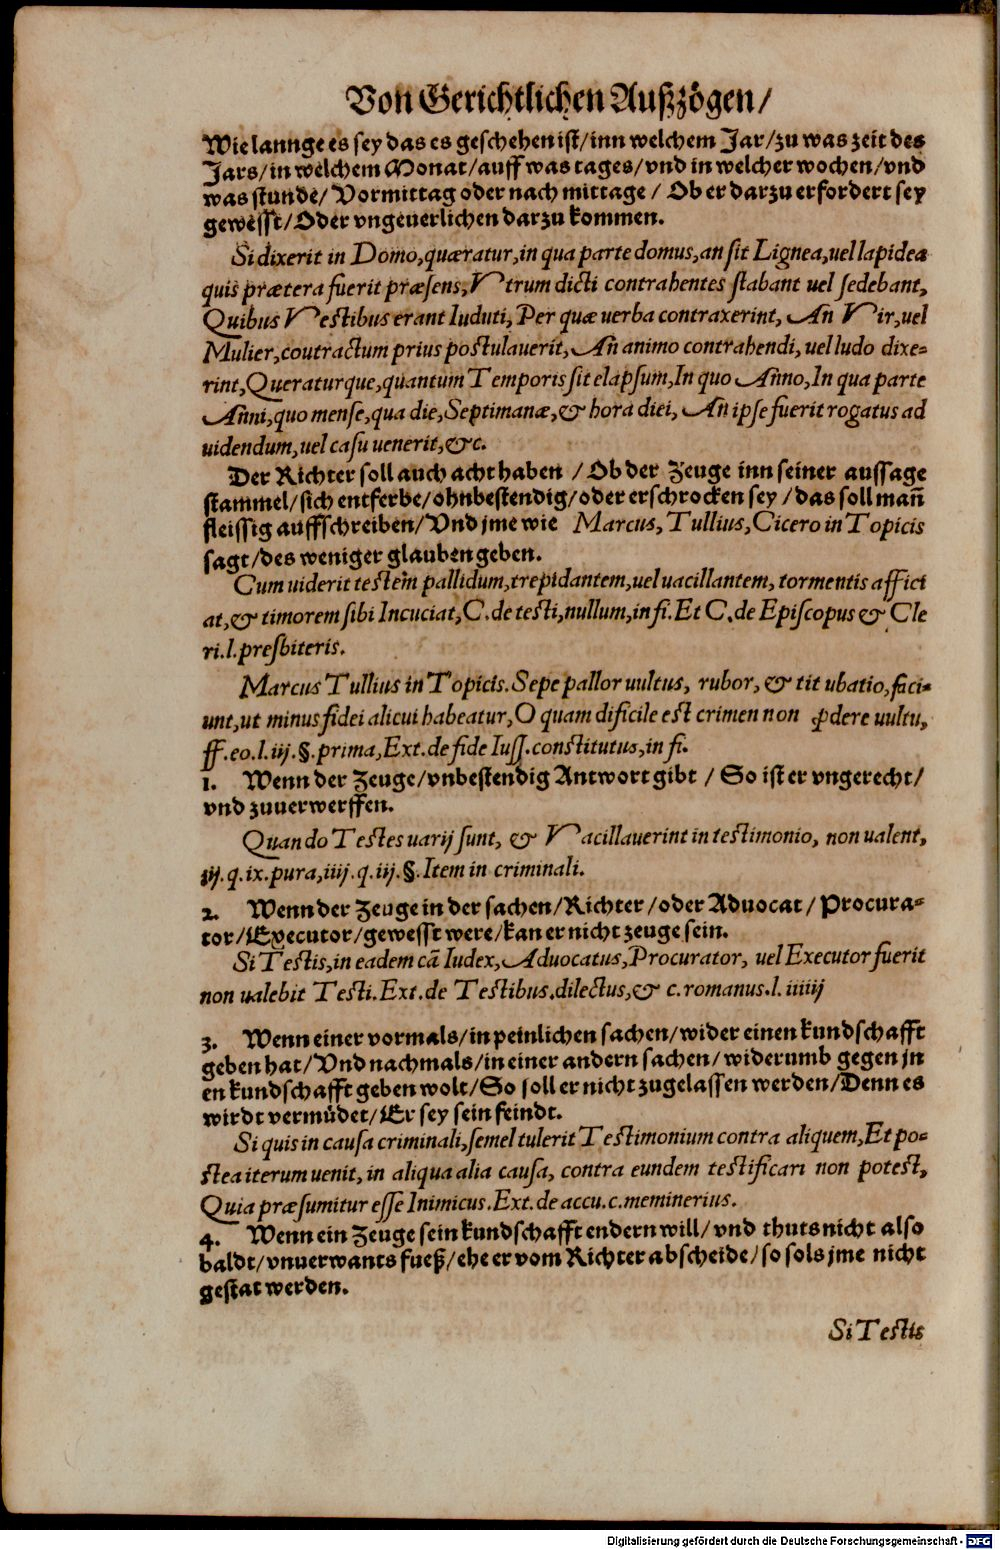 Von Gerichtlichen Außzögen/
Wie lannge es sey das es geschehen ist/inn welchem Jar/zu was zeit des
Jars/in welchem Monat/auff was tages/vnd in welcher wochen/vnd
was stunde/ Vormittag oder nach mittage / Ob er darzu erfordert sey
gewesst/Oder vngeuerlichen darzu kommen.
Si dixerit in Domo,quæratur,in qua parte domus,an sit Lignea,uel lapidea
quis prætera fuerit præsens,Vtrum dicti contrahentes stabant uel sedebant,
Quibus Vestibus erant Iuduti,Per quæ uerba contraxerint, An Vir,uel
Mulier,coutractum prius postulauerit,An animo contrahendi,uel ludo dixe-
rint,Queraturque,quantum Temporis sit elapsum,In quo Anno,In qua parte
Anni,quo mense,qua die,Septimanæ,& hora diei, An ipse fuerit rogatus ad
uidendum,uel casu uenerit,&c.
Der Richter soll auch acht haben / Ob der Zeuge inn seiner aussage
stammel/sich entferbe/ohnbestendig/oder erschrocken sey /das soll mañ
fleissig auffschreiben/Vnd jme wie Marcus, Tullius,Cicero in Topicis
sagt/des weniger glauben geben.
Cum uiderit testem pallidum,trepidantem,uel uacillantem, tormentis affici
at,& timorem sibi Incuciat,C.de testi,nullum,in fi.Et C.de Episcopus & Cle
ri.l.presbiteris.
Marcus Tullius in Topicis.Sepe pallor uultus, rubor, & tit ubatio,faci-
unt,ut minus fidei alicui habeatur,O quam dificile est crimen non ꝓdere uultu,
ff.eo.l.iij.§.prima,Ext.de fide Iuss.constitutus,in fi.
1. Wenn der Zeuge/vnbestendig Antwort gibt / So ist er vngerecht/
vnd zuuerwerffen.
Quando Testes uarij sunt, & Vacillauerint in testimonio, non ualent,
iij.q.ix.pura,iiij.q.iij.§.Item in criminali.
2. Wenn der Zeuge in der sachen/Richter/oder Aduocat/ Procura-
tor/Executor/gewesst were/kan er nicht zeuge sein.
Si Testis,in eadem cā Iudex,Aduocatus,Procurator, uel Executor fuerit
non ualebit Testi.Ext.de Testibus.dilectus,& c.romanus.l.iiiiij
3. Wenn einer vormals/in peinlichen sachen/wider einen kundschafft
geben hat/Vnd nachmals/in einer andern sachen/widerumb gegen jn
en kundschafft geben wolt/So soll er nicht zugelassen werden/Denn es
wirdt vermůdet/Er sey sein feindt.
Si quis in causa criminali,semel tulerit Testimonium contra aliquem,Et po-
stea iterum uenit,in aliqua alia causa, contra eundem testificari non potest,
Quia præsumitur esse Inimicus.Ext.de accu.c.meminerius.
4. Wenn ein Zeuge sein kundschafft endern will/ vnd thuts nicht also
baldt/vnuerwants fueß/ehe er vom Richter abscheide/so sols jme nicht
gestat werden.
Si Testis
Digitalisierung gefördert durch die Deutsche Forschungsgemeinschaft - DFG